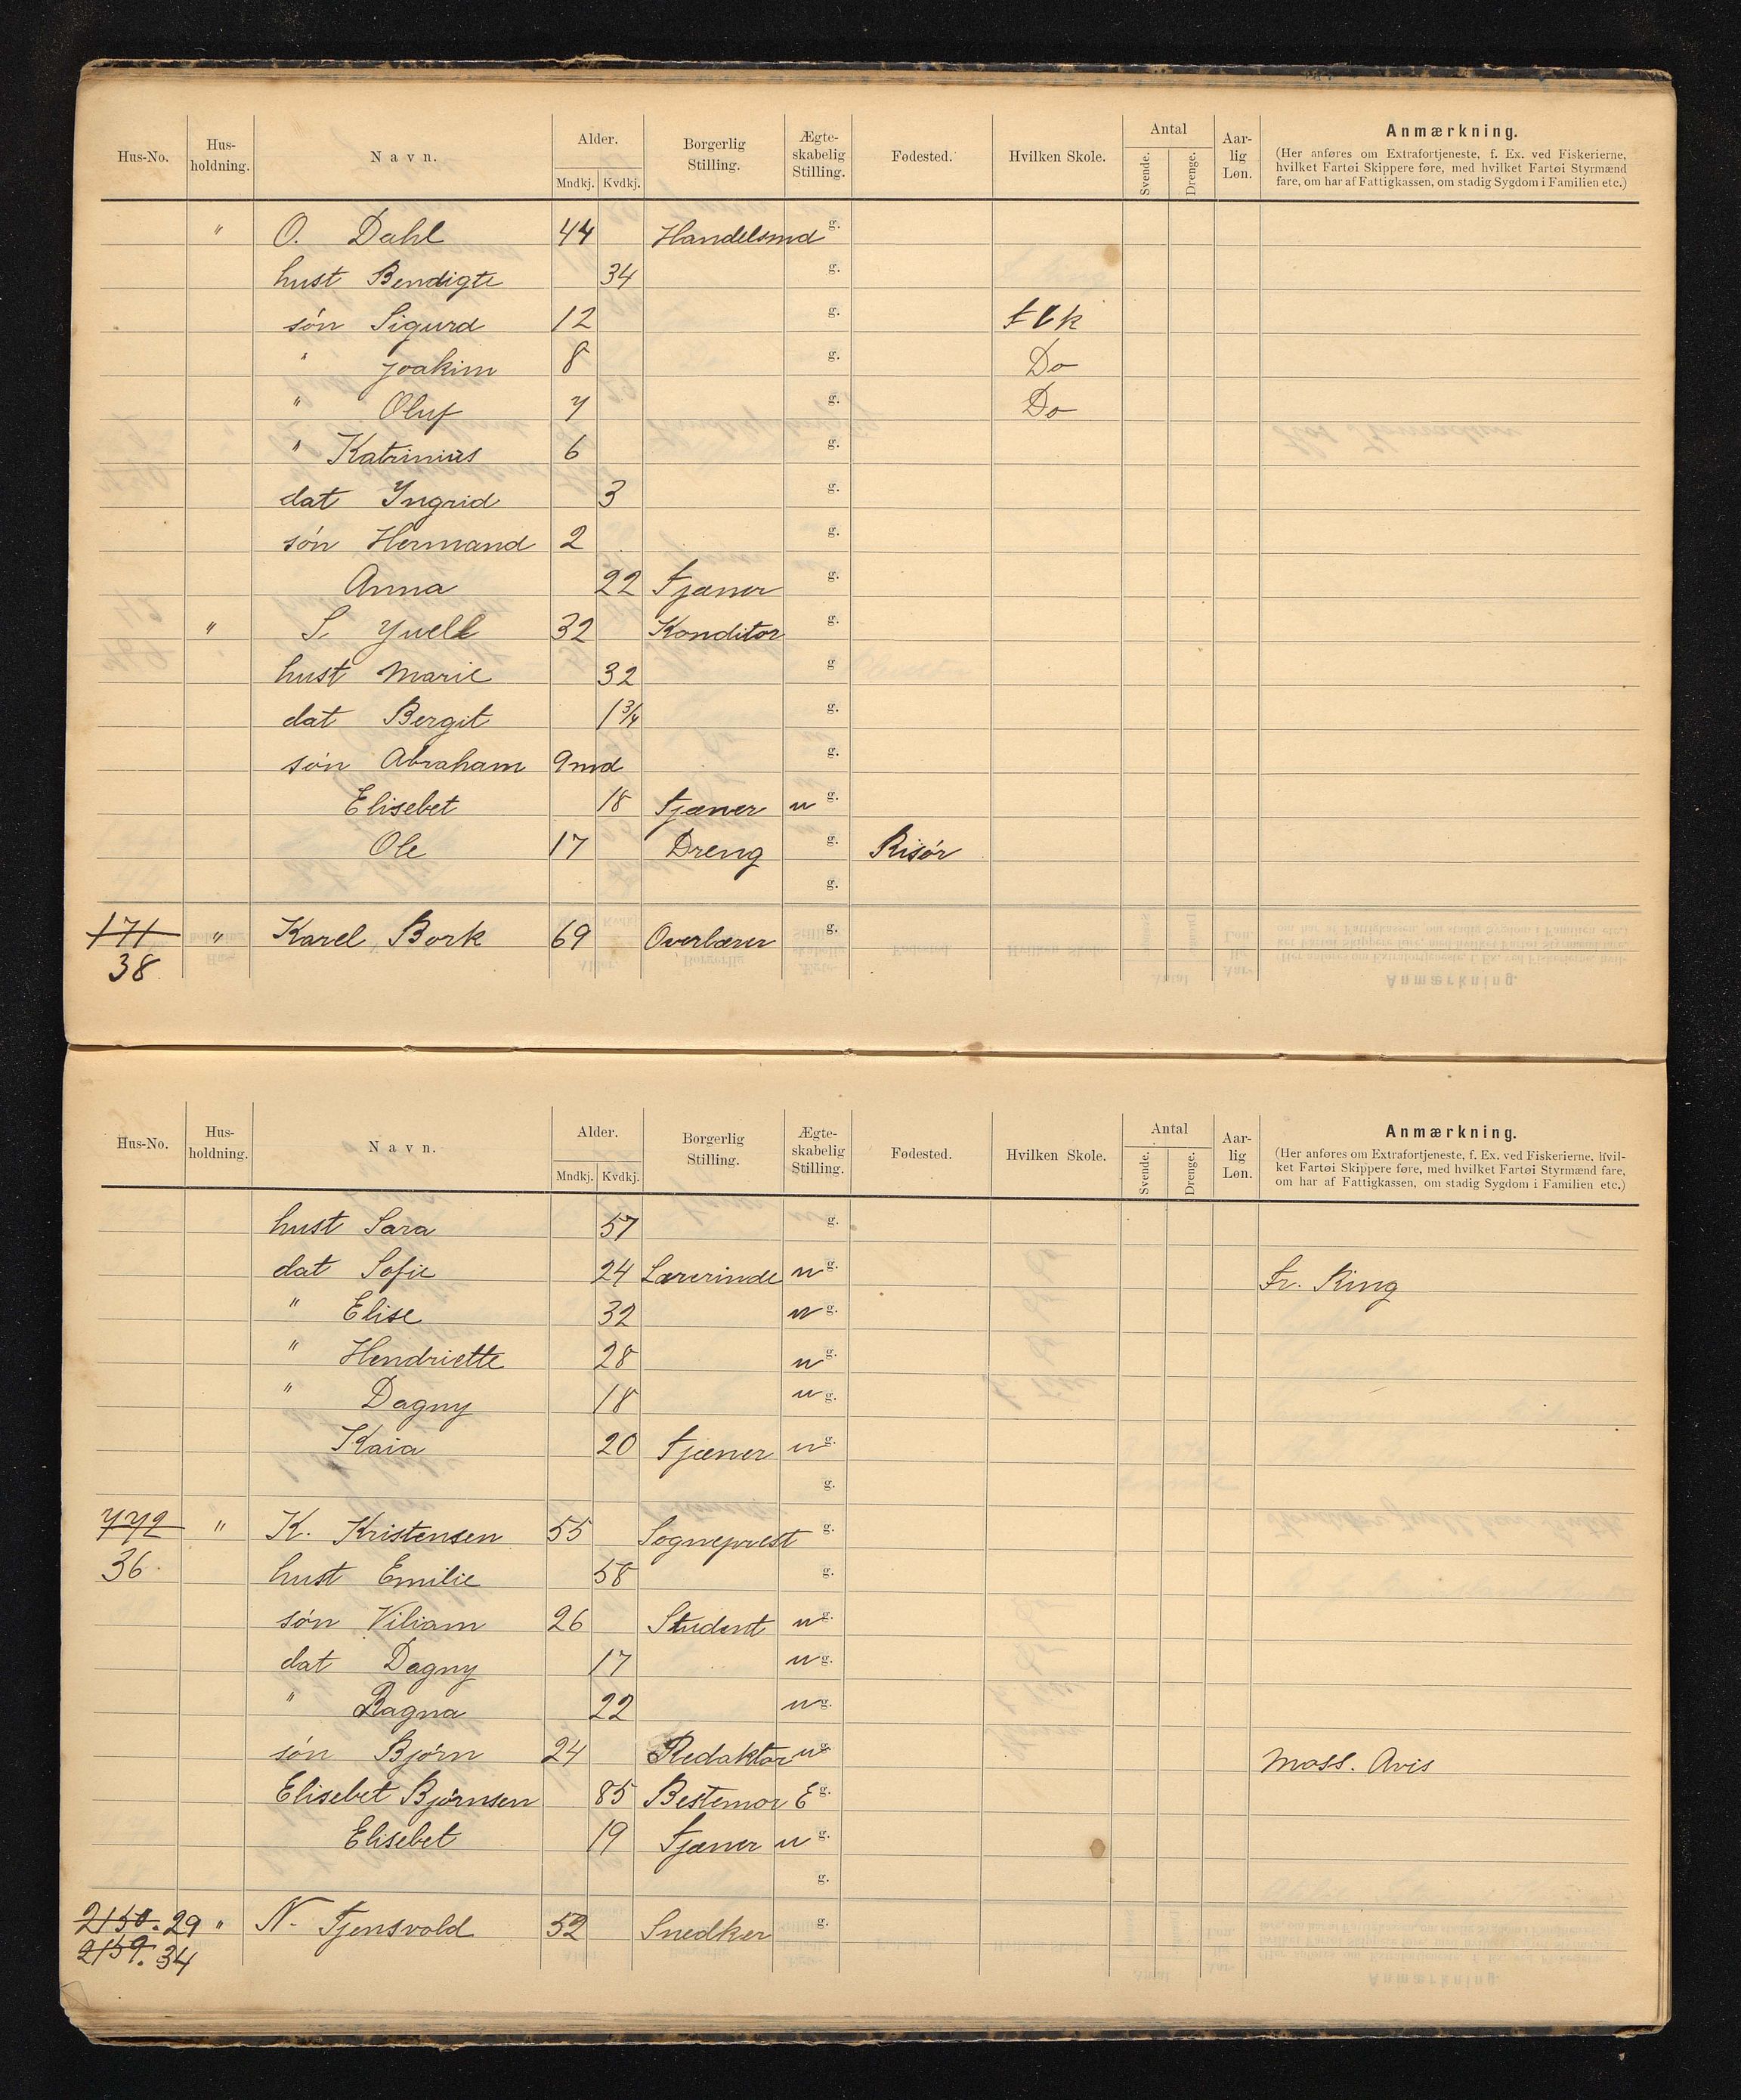 Hus-No. Hus-holdning. Navn. Alder. Mndkj. Kvdkj. Borgerlig Stilling. Ægte-skabelig Stilling. Fødested. Hvilken Skole. Antal Svende. Drenge. Aar-lig Løn. Anmærkning.
(Her anføres om Extrafortjeneste, f. Ex. ved Fiskerierne,
hvilket Fartøi Skippere føre, med hvilket Fartøi Styrmænd
fare, om har af Fattigkassen, om stadig Sygdom i Familien etc.)
" O. Dahl 44 Handelsmd g.
hust Bendigte 34 g.
søn Sigurd 12 g.
" Joakim 8 g. Do
" Oluf 7 g. Do
" Katrinius 6 g.
dat Yngrid 3 g.
søn Hermand 2 g.
Anna 22 Tjæner g.
" S. Yuell 32 Konditor g.
hust Marie 32 g
dat Bergit 1 3/4 g.
søn Abraham 9md g.
Elisebet 18 Tjæner u g.
Ole 17 Dreng g. Risør
g.
171 " Karel Bork 69 Overlærer g.
38
Hus-No. Hus-holdning. Navn. Alder. Mndkj. Kvdkj. Borgerlig Stilling. Ægte-skabelig Stilling. Fødested. Hvilken Skole. Antal Svende. Drenge. Aar-lig Løn. Anmærkning.
(Her anføres om Extrafortjeneste, f. Ex. ved Fiskerierne, hvil-
ket Fartøi Skippere føre, med hvilket Fartøi Styrmænd fare,
om har af Fattigkassen, om stadig Sygdom i Familien etc.)
hust Sara 57 g.
dat Sofie 24 Lærerinde u g. Fr. Ring
" Elise 32 u g.
" Hendriette 28 u g.
" Dagny 18 u g.
Kaia 20 Tjæner u g.
g.
772 " K. Kristensen 55 Sogneprest g.
36 hust Emilie 58 g.
søn Viliam 26 Student u g.
dat Dagny 17 u g.
" Ragna 22 u g.
søn Bjørn 24 Redaktør u g. Moss. Avis
Elisebet Bjørnsen 85 Bestemor E g.
Elisebet 19 Tjæner u g.
g.
2150. 29 " N. Tjensvold 52 Snedker g.
2159. 34